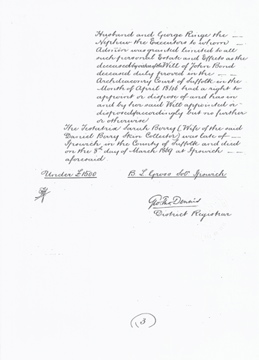 Husband and George Ringe the
Nephew the Executors to whom
Admon was granted limited to all
such personal Estate and Effects as the
deceased by virtue of the Will of John Bond
deceased duly proved in the
Archdeaconry Court of Suffolk in the
Month of April 1846 had a right to
appoint or dispose of and has in
and by her said Will appointed or
disposed accordingly but no further
or otherwise
The Testatrix Sarah Berry (Wife of the said
Daniel Berry Skin Collector) was late of
Ipswich in the County of Suffolk and died
on the day of March 1869 at Ipswich
aforesaid
Under £1500 B L Gross Solr Ipswich
District Registrar
(3)